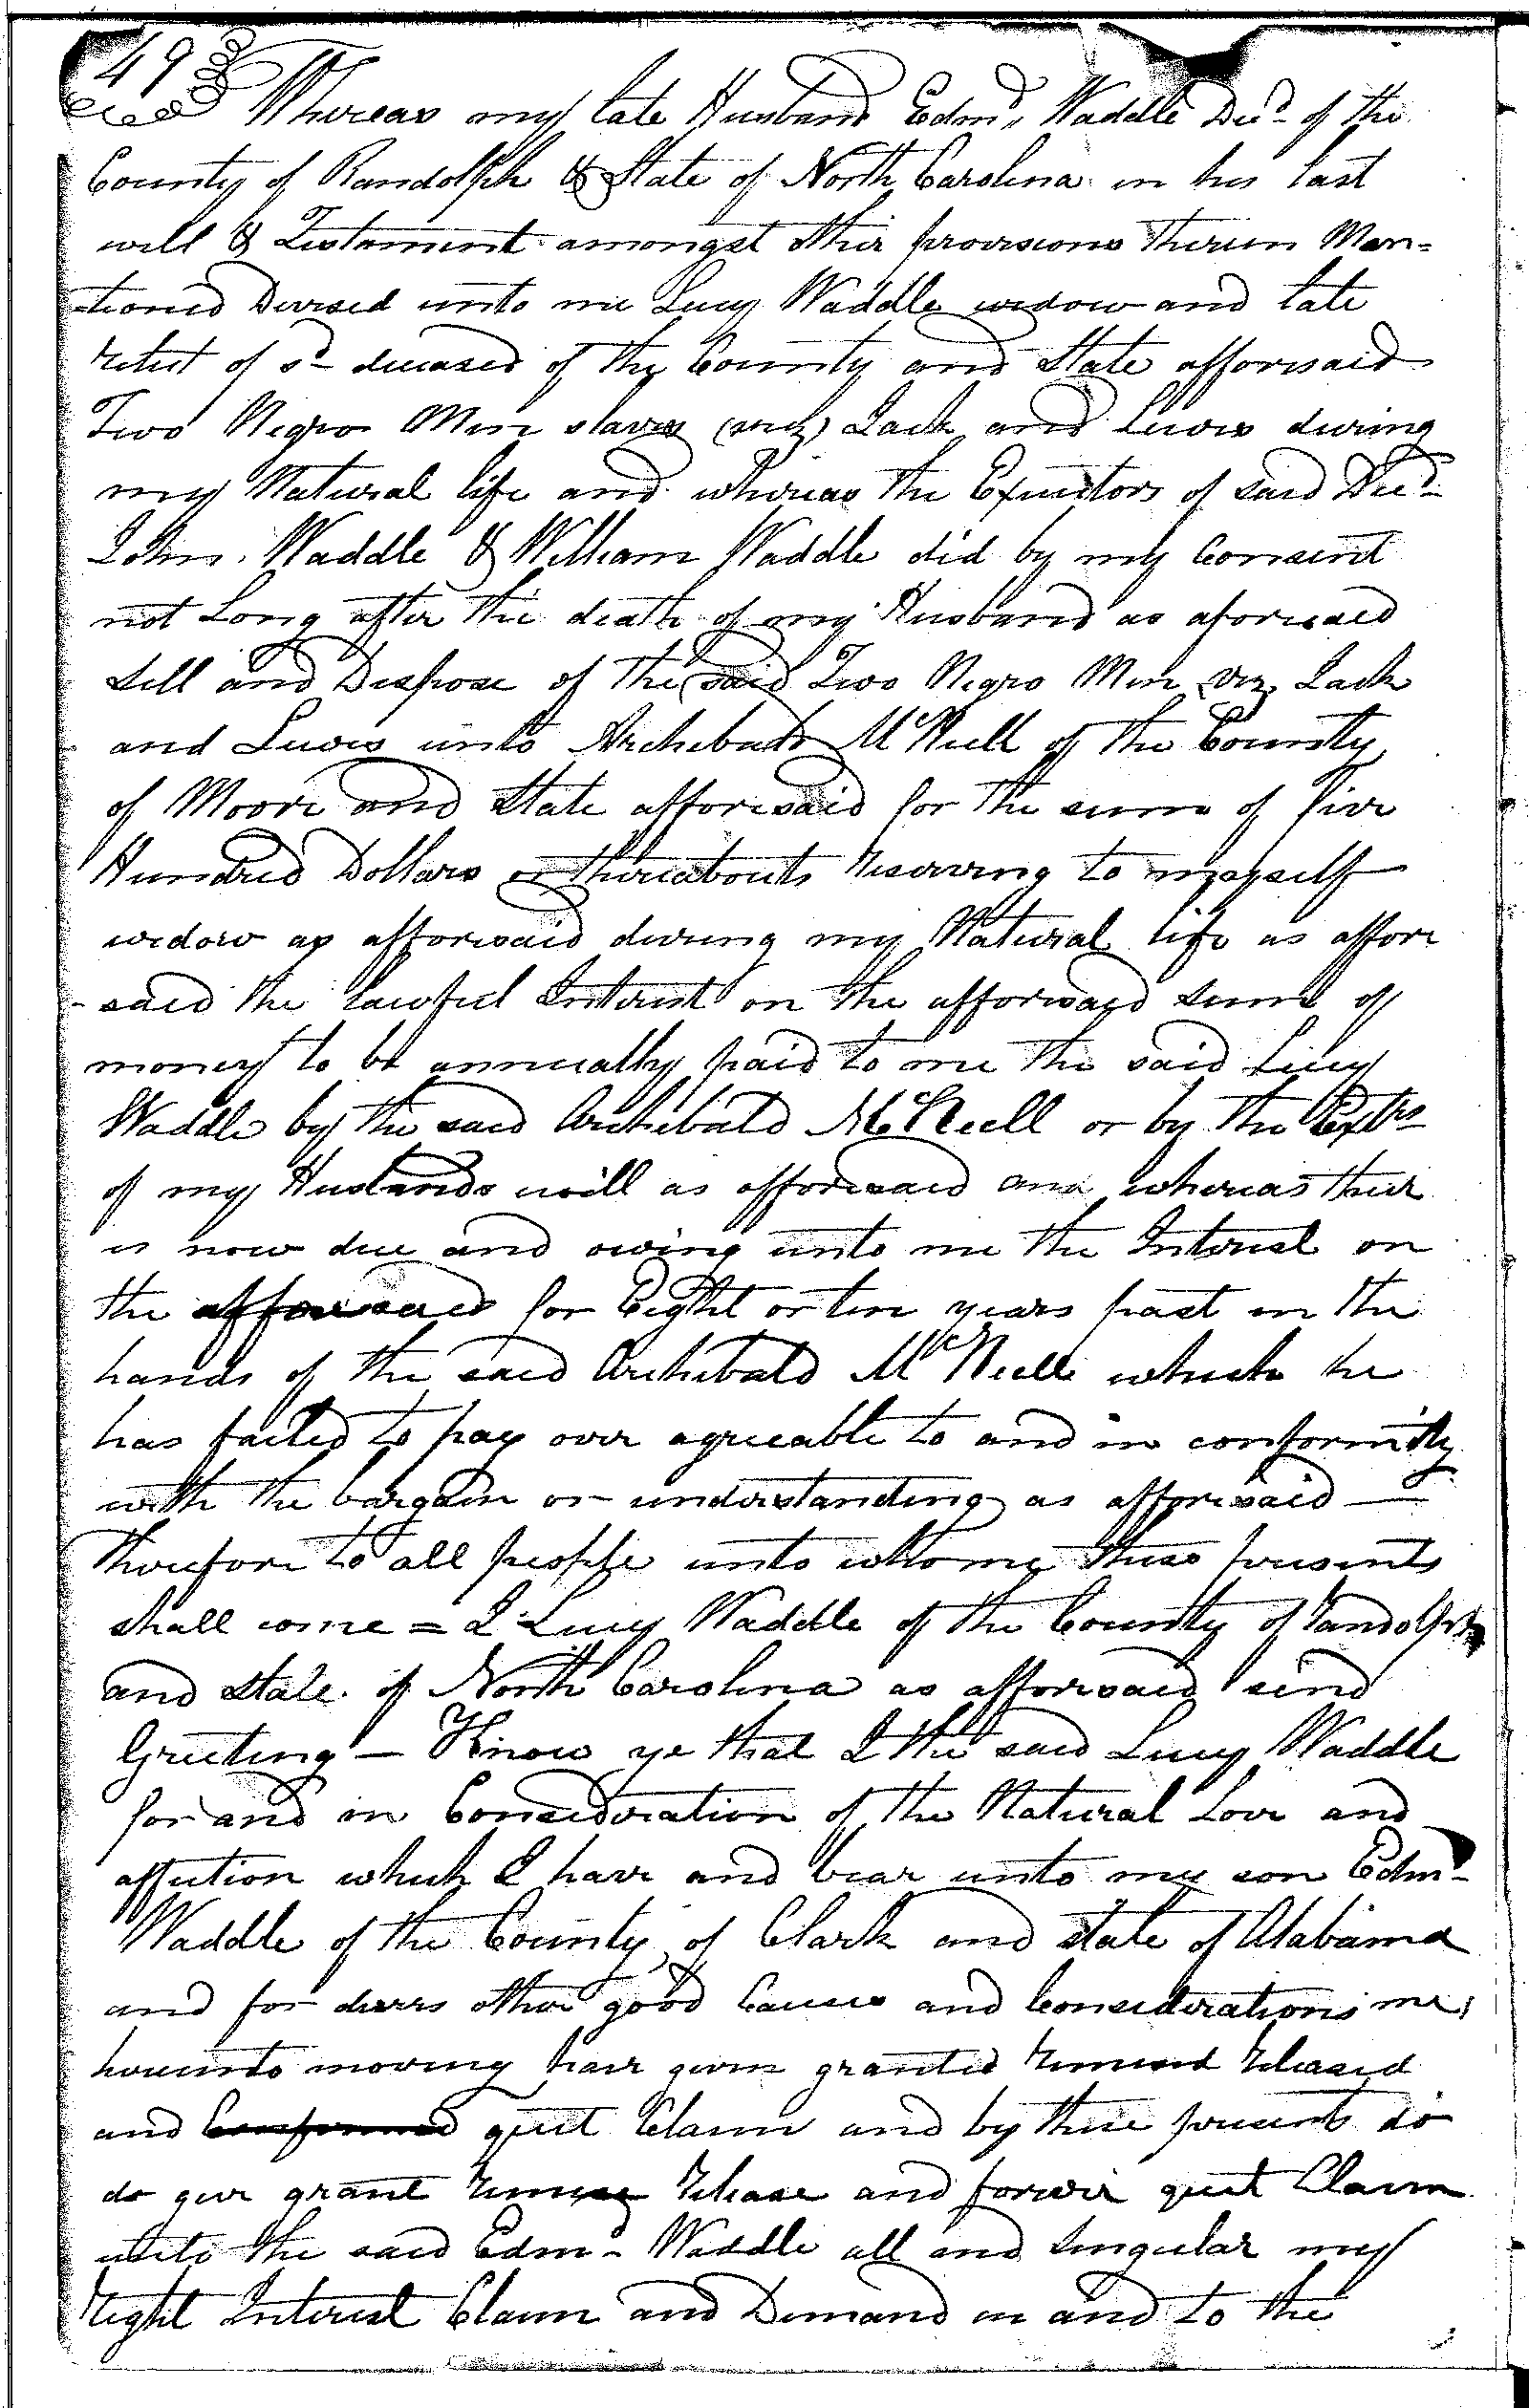 49
Whereas my late Husband Edmd. Waddle Decd. of the
County of Randolph & State of North Carolina in his last
will & Testament amongst other provisions therein Men=
-tioned Devised unto me Lucy Waddle widow and late
relict of sd deceased of the County and State afforesaid
Two Negro Men slaves (viz) Jack and Lewis during
my Natural life and whereas the Executors of said Decd.
John Waddle & William Waddle did by my Consent
not Long after the death of my Husband as aforesaid
Sell and Dispose of the said Two Negro Men viz Jack
and Lewis unto Archebald McNeill of the County
of Moore and State afforesaid for the sum of five
Hundred Dollars or thereabouts reserving to myself
widow as afforesaid during my Natural life as affore
-said the lawful Interest on the afforesaid sum of
money to be annually paid to me the said Lucy
Waddle by the said Archebald McNeill or by the Extrs
of my Husbands will as afforesaid and whereas their
is now due and owing unto me the Interest on
the afforesaid for Eight or ten years past in the
hands of the said Archebald McNeill which he
has failed to pay over agreeable to and in conformity
with the bargain or understanding as afforesaid —
therefore to all people unto whome these presents
shall come = I Lucy Waddle of the County of Randolph
and state of North Carolina as afforesaid send
Greeting — Know ye that I the said Lucy Waddle
for and in Consideration of the Natural Love and
affection which I have and bear unto my son Edmd
Waddle of the County of Clark and state of Alabama
and for divers other good Causes and Considerations me
hereunto moving have given granted remised released
and Confirmed quit Claim and by these presents do
do give grant remise release and forever quit Claim
unto the said Edmd Waddle all and singular my
right Interest Claim and Demand in and to the